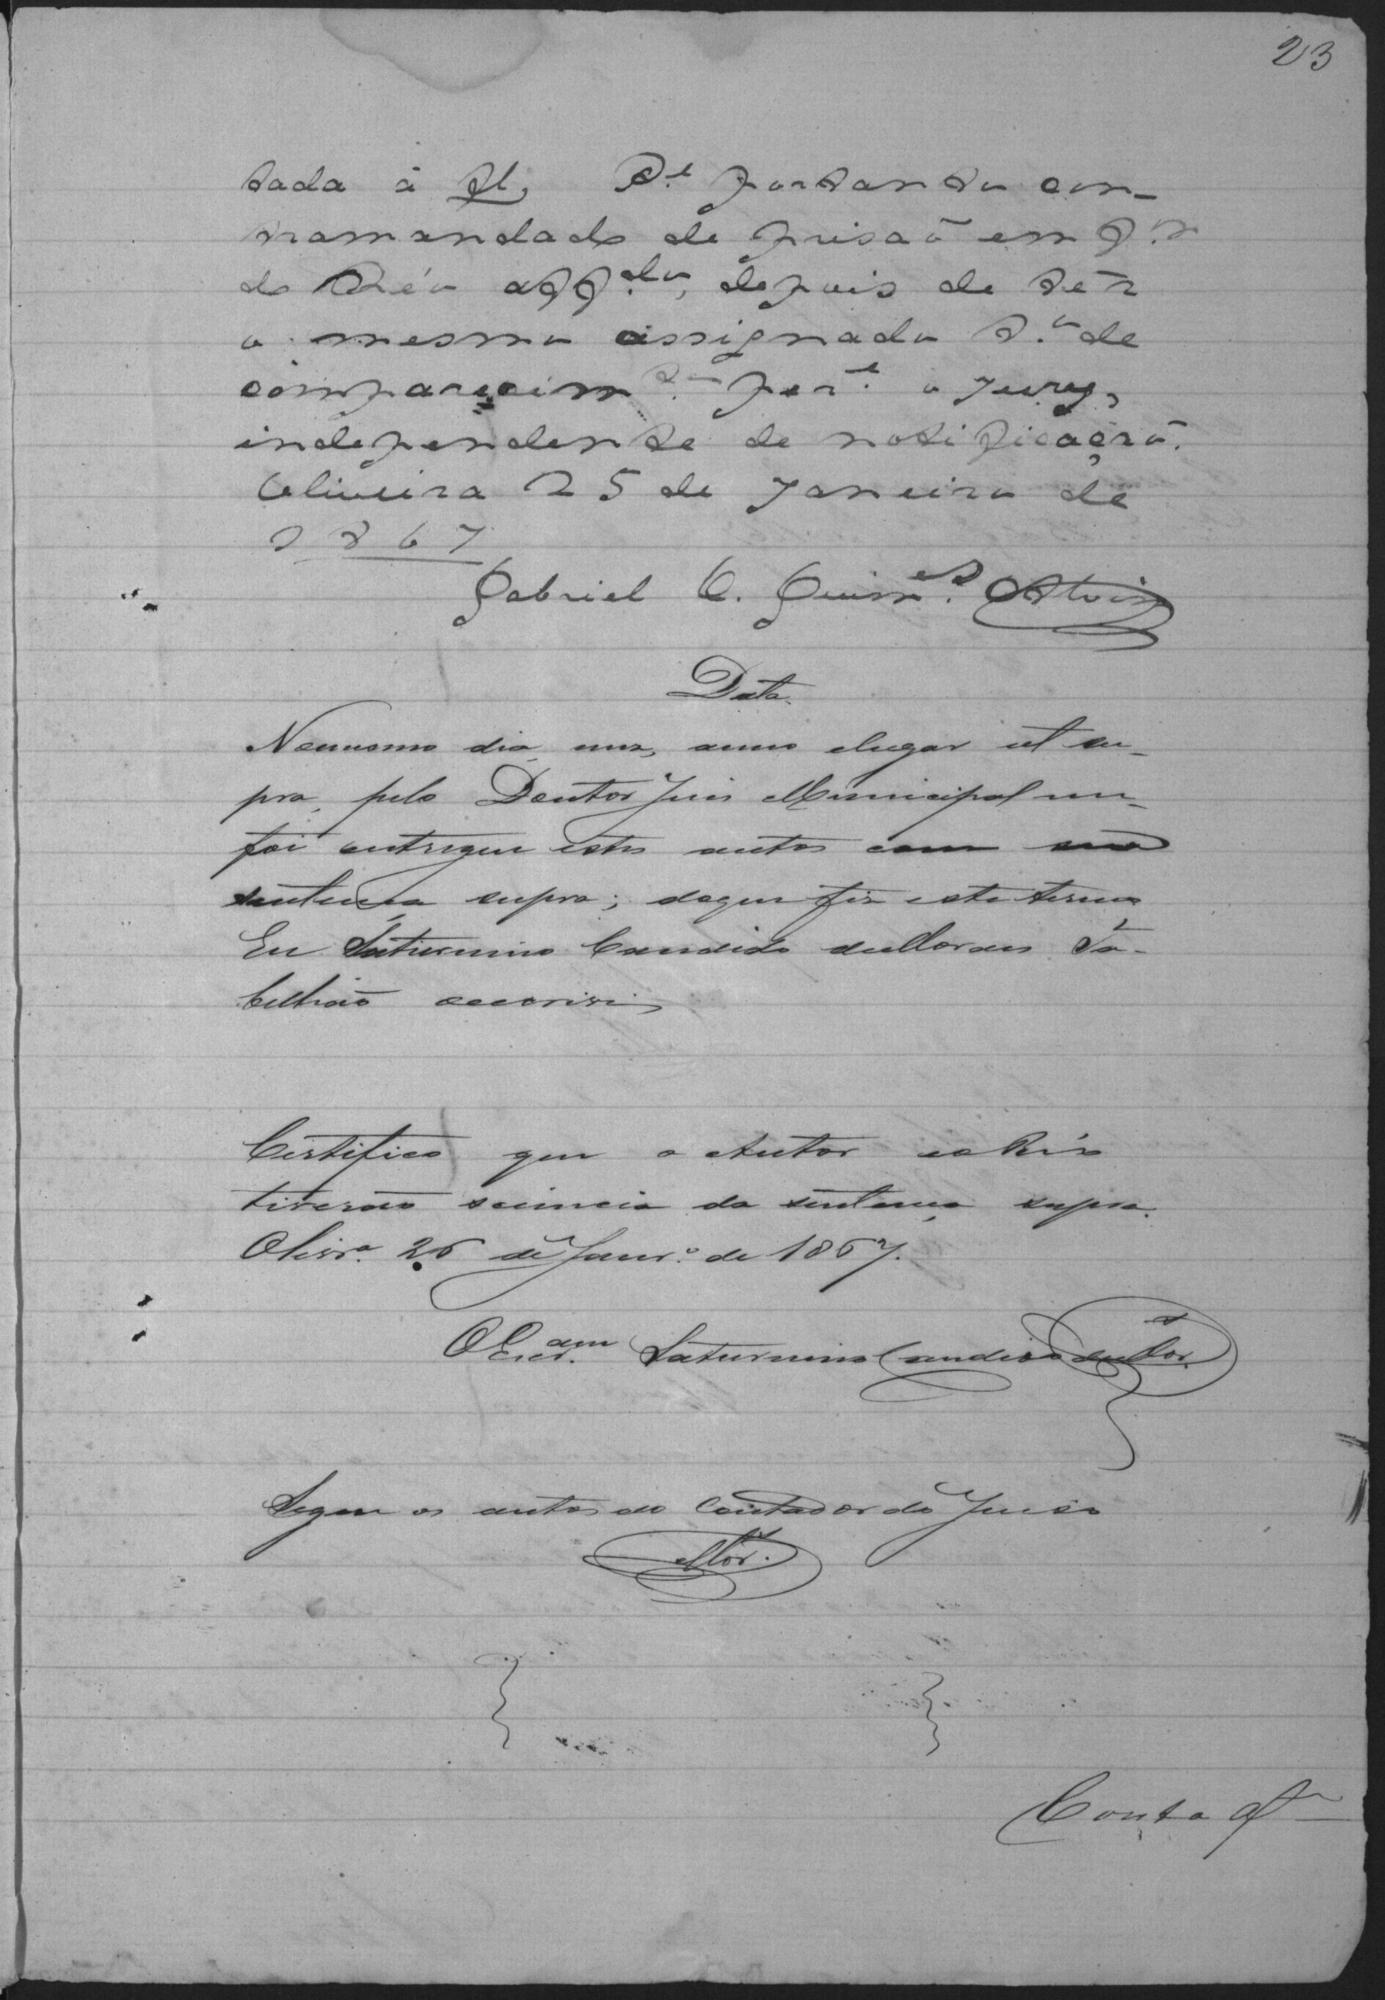 23
tada á fl, P.e portanto con-
tramandado de prisaõ em f.or
do Réo aff.do, depois de têr
o mesmo assignado t.o de
comparecim.to per.e o Jury,
independente de notificaçaõ.
Oliveira 25 de Janeiro de
1867
Gabriel C. Guim.es
Data.
Nomesmo dia, mez, anno elugar ut su-
pra, pelo Doutor Juis Municipal me
foi entregue estes autos com sua
sentença supra; doque fiz este termo
Eu Saturnino Candido de Moraes Ta-
belliaõ oescrivi
Certifico que o Autor eo Réo
tiveraõ sciencia da sentença supra.
Olivr.a 26 de Janr.o de 1867.
O Escr.am Saturnino Candido de Mor.s
Segue os autos ao Contador do Juiso
Mor.s
Conta